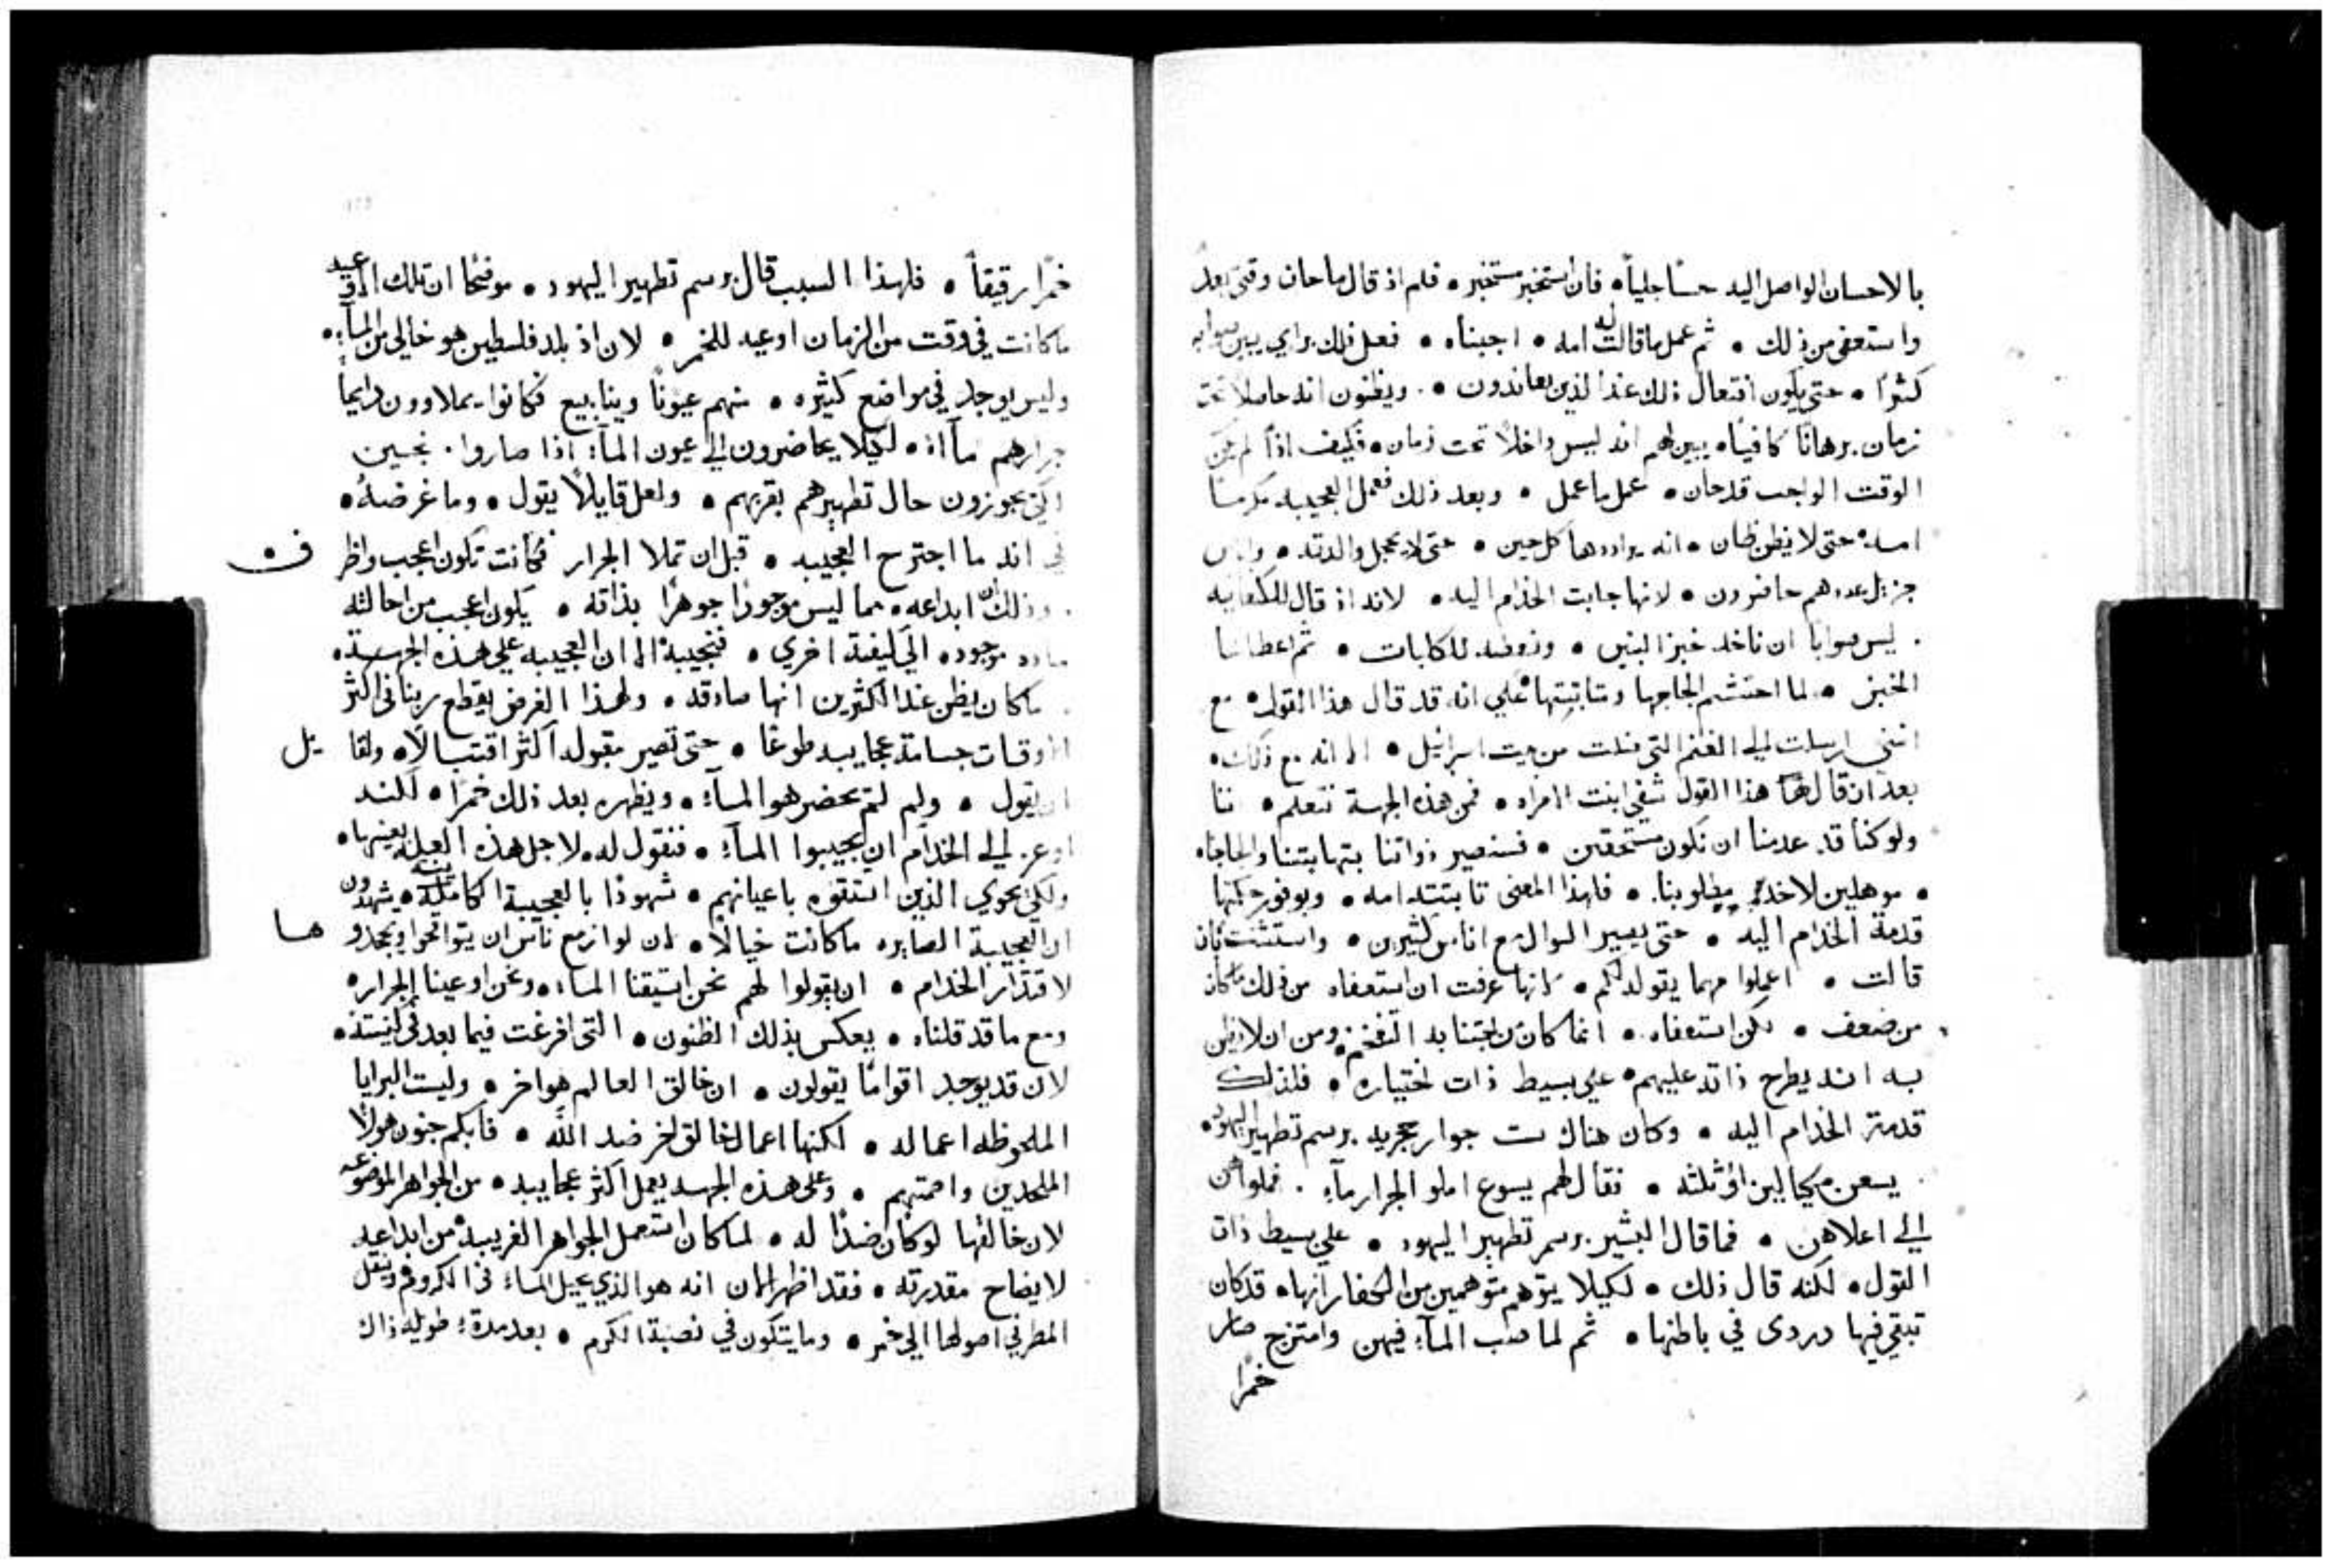 بالاحسان الواصل اليه حسًا جلياً • فان استخبر مستخبر • فلم اذ قال ما حان وقتي بعد
واستعفى من ذلك • ثم عمل ما قالت له امه • اجبناه • فعل ذلك براي يبين صوابه
كثرًا • حتى يكون افتعال ذلك عند الذين يعاندون • ويظنون انه حاصلاً تحت
زمان برهانًا كافيًا • يبين لهم انه ليس داخلاً تحت زمان • فكيف اذًا لم يكن
الوقت الواجب قد حان • عمل ما عمل • وبعد ذلك فعمل العجيبه مكرمًا
امه • حتى لا يظن ظان • انه يراددها كل حين • حتى لا يخجل والدته • واناس
جزيل عددهم حاضرون • لانها جابت الخدام اليه • لانه اذ قال للكنعانيه
ليس صوابا ان ناخد خبز البنين • ونعطيه للكلبات • ثم اعطاها
الخبز • لما احتشم الجاجها وثتابتها • علي انه قد قال هذا القول • مع
انني ارسلت الي الغنم التي ضلت من بيت اسرايل • الا انه مع ذلك •
بعد ان قال لها هذا القول شفى ابنت الامراه • فمن هذه الجهة نتعلم • اننا
ولو كنا قد عدمنا ان نكون مستحقين • فسنصير ذواتنا بثتابتنا والجاجنا •
• موهلين لاخد مطلوبنا • فلهذا المعنى ثابتته امه • وبوفور حكمتها
قدمة الخدام اليه • حتى يصير السوال مع اناس كثيرين • واستثنت بان
قالت • اعملوا مهما يقول لكم • لانها عرفت ان استعفاه من ذلك ما كان
من ضعف • لكن استعفاه • انما كان تجتنابه التفخم • ومن ان لا يظن
به انه يطرح ذاته عليهم • علي بسيط ذات اختياره • فلذلك
قدمة الخدام اليه • وكان هناك ست جرار حجريه برسم تطهير اليهود •
يسعن مكيالين او ثلثه • فقال لهم يسوع املو الجرار مآء • فملوا هن
الي اعلاهن • فما قال البشير برسم تطهير اليهود • علي بسيط ذات
القول • لكنه قال ذلك • لكيلا يتوهم متوهمين من الكفار انها • قد كان
تبقي فيها دردى في باطنها • ثم لما صب المآء فيهن وامتزج صار
خمرًا
خمرًا رقيقاً • فلهذا السبب قال برسم تطهير اليهود • موضحًا ان تلك الاوعيه
ما كانت في وقت من الزمان اوعيه للخمر • لان اذ بلد فلسطين هو خالي من المآء •
وليس يوجد في مواضع كثيره • منهم عيونًا وينابيع فكانوا يملاوون دايمًا
جرارهم مآاء • لكيلا يحاضرون الي عيون المآء اذا صاروا نجسين
لكي يجوزون حال تطهيرهم بقربهم • ولعل قايلاً يقول • وما غرضه •
في انه ما اجترح العجيبه • قبل ان تملا الجرار فكانت تكون اعجب واظر
ف •
وذلك ان ابداعه • مما ليس موجودًا جوهرًا بذاته • يكون اعجب من احالته
ماده موجوده الي كيفية اخري • فنجيبه الا ان العجيبه علي هذه الجهة •
ما كان يظن عند الكثرين انها صادقه • ولهذا الغرض يقطع ربنا في اكثر
الاوقات جسامة عجايبه طوعًا • حتى تصير مقبوله اكثر اقتبالاً • ولقا
يل
ان يقول • ولم لم يحضر هو المآء • ويظهره بعد ذلك خمرًا • لكنه
اوعز الي الخدام ان يجيبوا المآء • فنقول له • لاجل هذه العله بعينها •
ولكي يحوي الذين استقوه باعيانهم • شهودًا بالعجيبة الكامله • يشهدون
ان العجيبة الصايره ما كانت خيالاً • لان لو ازمع ناس ان يتواقحوا ويجحدو
هـا
لاقتدار الخدام • ان يقولوا لهم نحن استيقنا الماء • ونحن اوعينا الجرار •
ومع ما قد قلناه • يعكس بذلك الظنون • التى افرغت فيما بعد في كنيسته •
لان قد يوجد اقوامًا يقولون • ان خالق العالم هو اخر • وليست البرايا
الملحوظه اعماله • لكنها اعمال خالق اخر ضد الله • فابكم جنون هولا
الملحدين واصمتهم • وعلى هذه الجهه يعمل اكثر عجايبه • من الجواهر الموضوعه
لان خالقها لو كان ضدًا له • لما كان استعمل الجواهر الغريبة من ابداعه
لايضاح مقدرته • فقد اظهر الان انه هو الذي يحيل الماء في الكروم وينقل
المطر في اصولها الي خمر • وما يتكون في نصبة الكرم • بعد مدة طويله ذاك